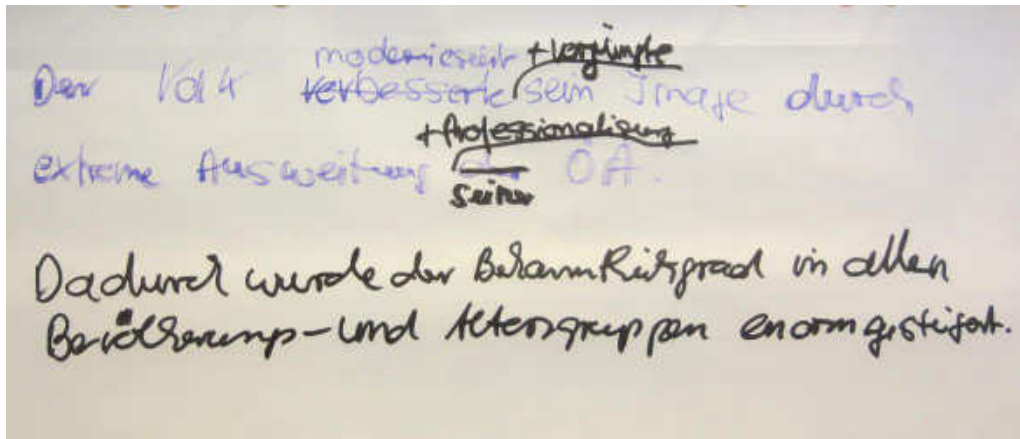 modernisiert + verjüngte
Der VdK verbesserte sein Image durch
+ Professionalisierung
extreme Ausweitung der ÖA.
seiner
Dadurch wurde der Bekanntheitsgrad in allen
Bevölkerungs- und Altersgruppen enorm gesteigert.